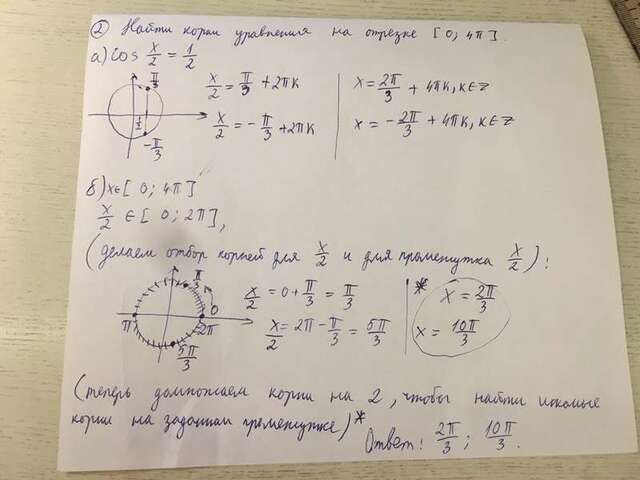 ② Найти корни уравнения на отрезке [0; 4π].
а) cos x/2 = 1/2
π/3
1/2
-π/3
x/2 = π/3 + 2πk
x/2 = -π/3 + 2πk
x = 2π/3 + 4πk, k∈Z
x = -2π/3 + 4πk, k∈Z
б) x∈[0; 4π]
x/2 ∈ [0; 2π],
(делаем отбор корней для x/2 и для промежутка x/2):
π/3
π
0
2π
5π/3
x/2 = 0 + π/3 = π/3
x/2 = 2π - π/3 = 5π/3
* x = 2π/3
x = 10π/3
(теперь домножаем корни на 2, чтобы найти искомые
корни на заданном промежутке)*
Ответ: 2π/3; 10π/3.